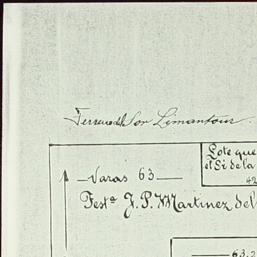 Terreno del Sor Limantour.
Lote que
el Sr de la
42
Varas 63
Test° J. P. Martinez del
63.2